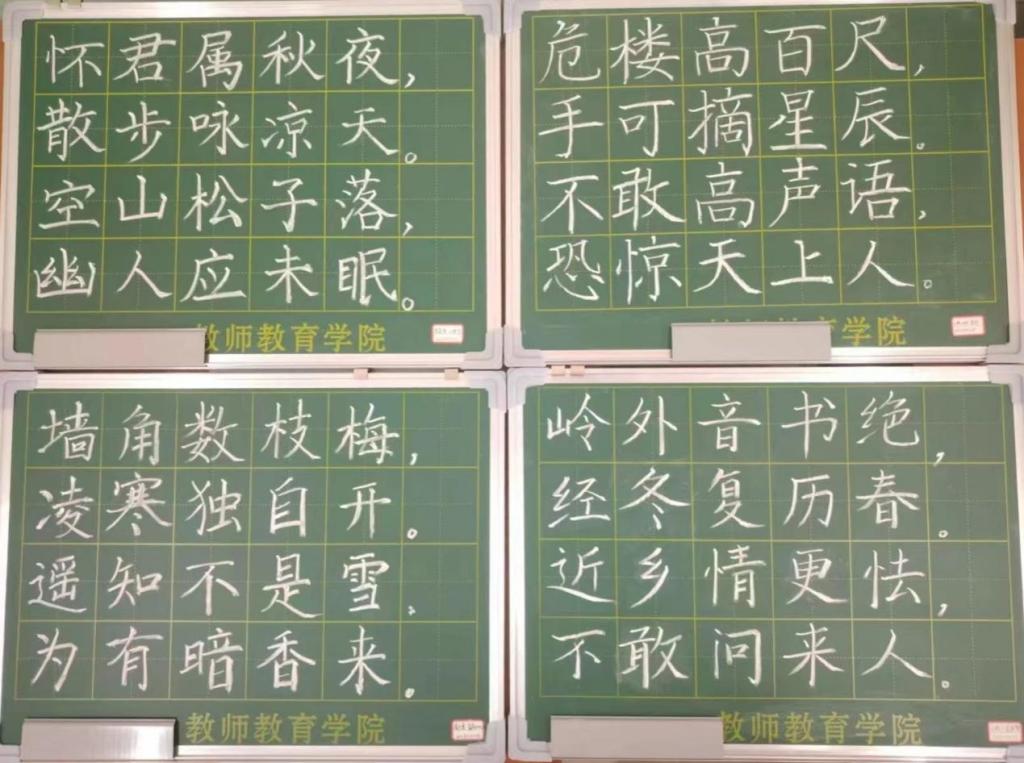 怀君属秋夜,
散步咏凉天。
空山松子落,
幽人应未眠。
教师教育学院
危楼高百尺,
手可摘星辰。
不敢高声语,
恐惊天上人。
育学院
墙角数枝梅,
凌寒独自开。
遥知不是雪.
为有暗香来.
教师教育学院
岭外音书绝,
经冬复历春。
近乡情更怯,
不敢问来人。
教师教育学院